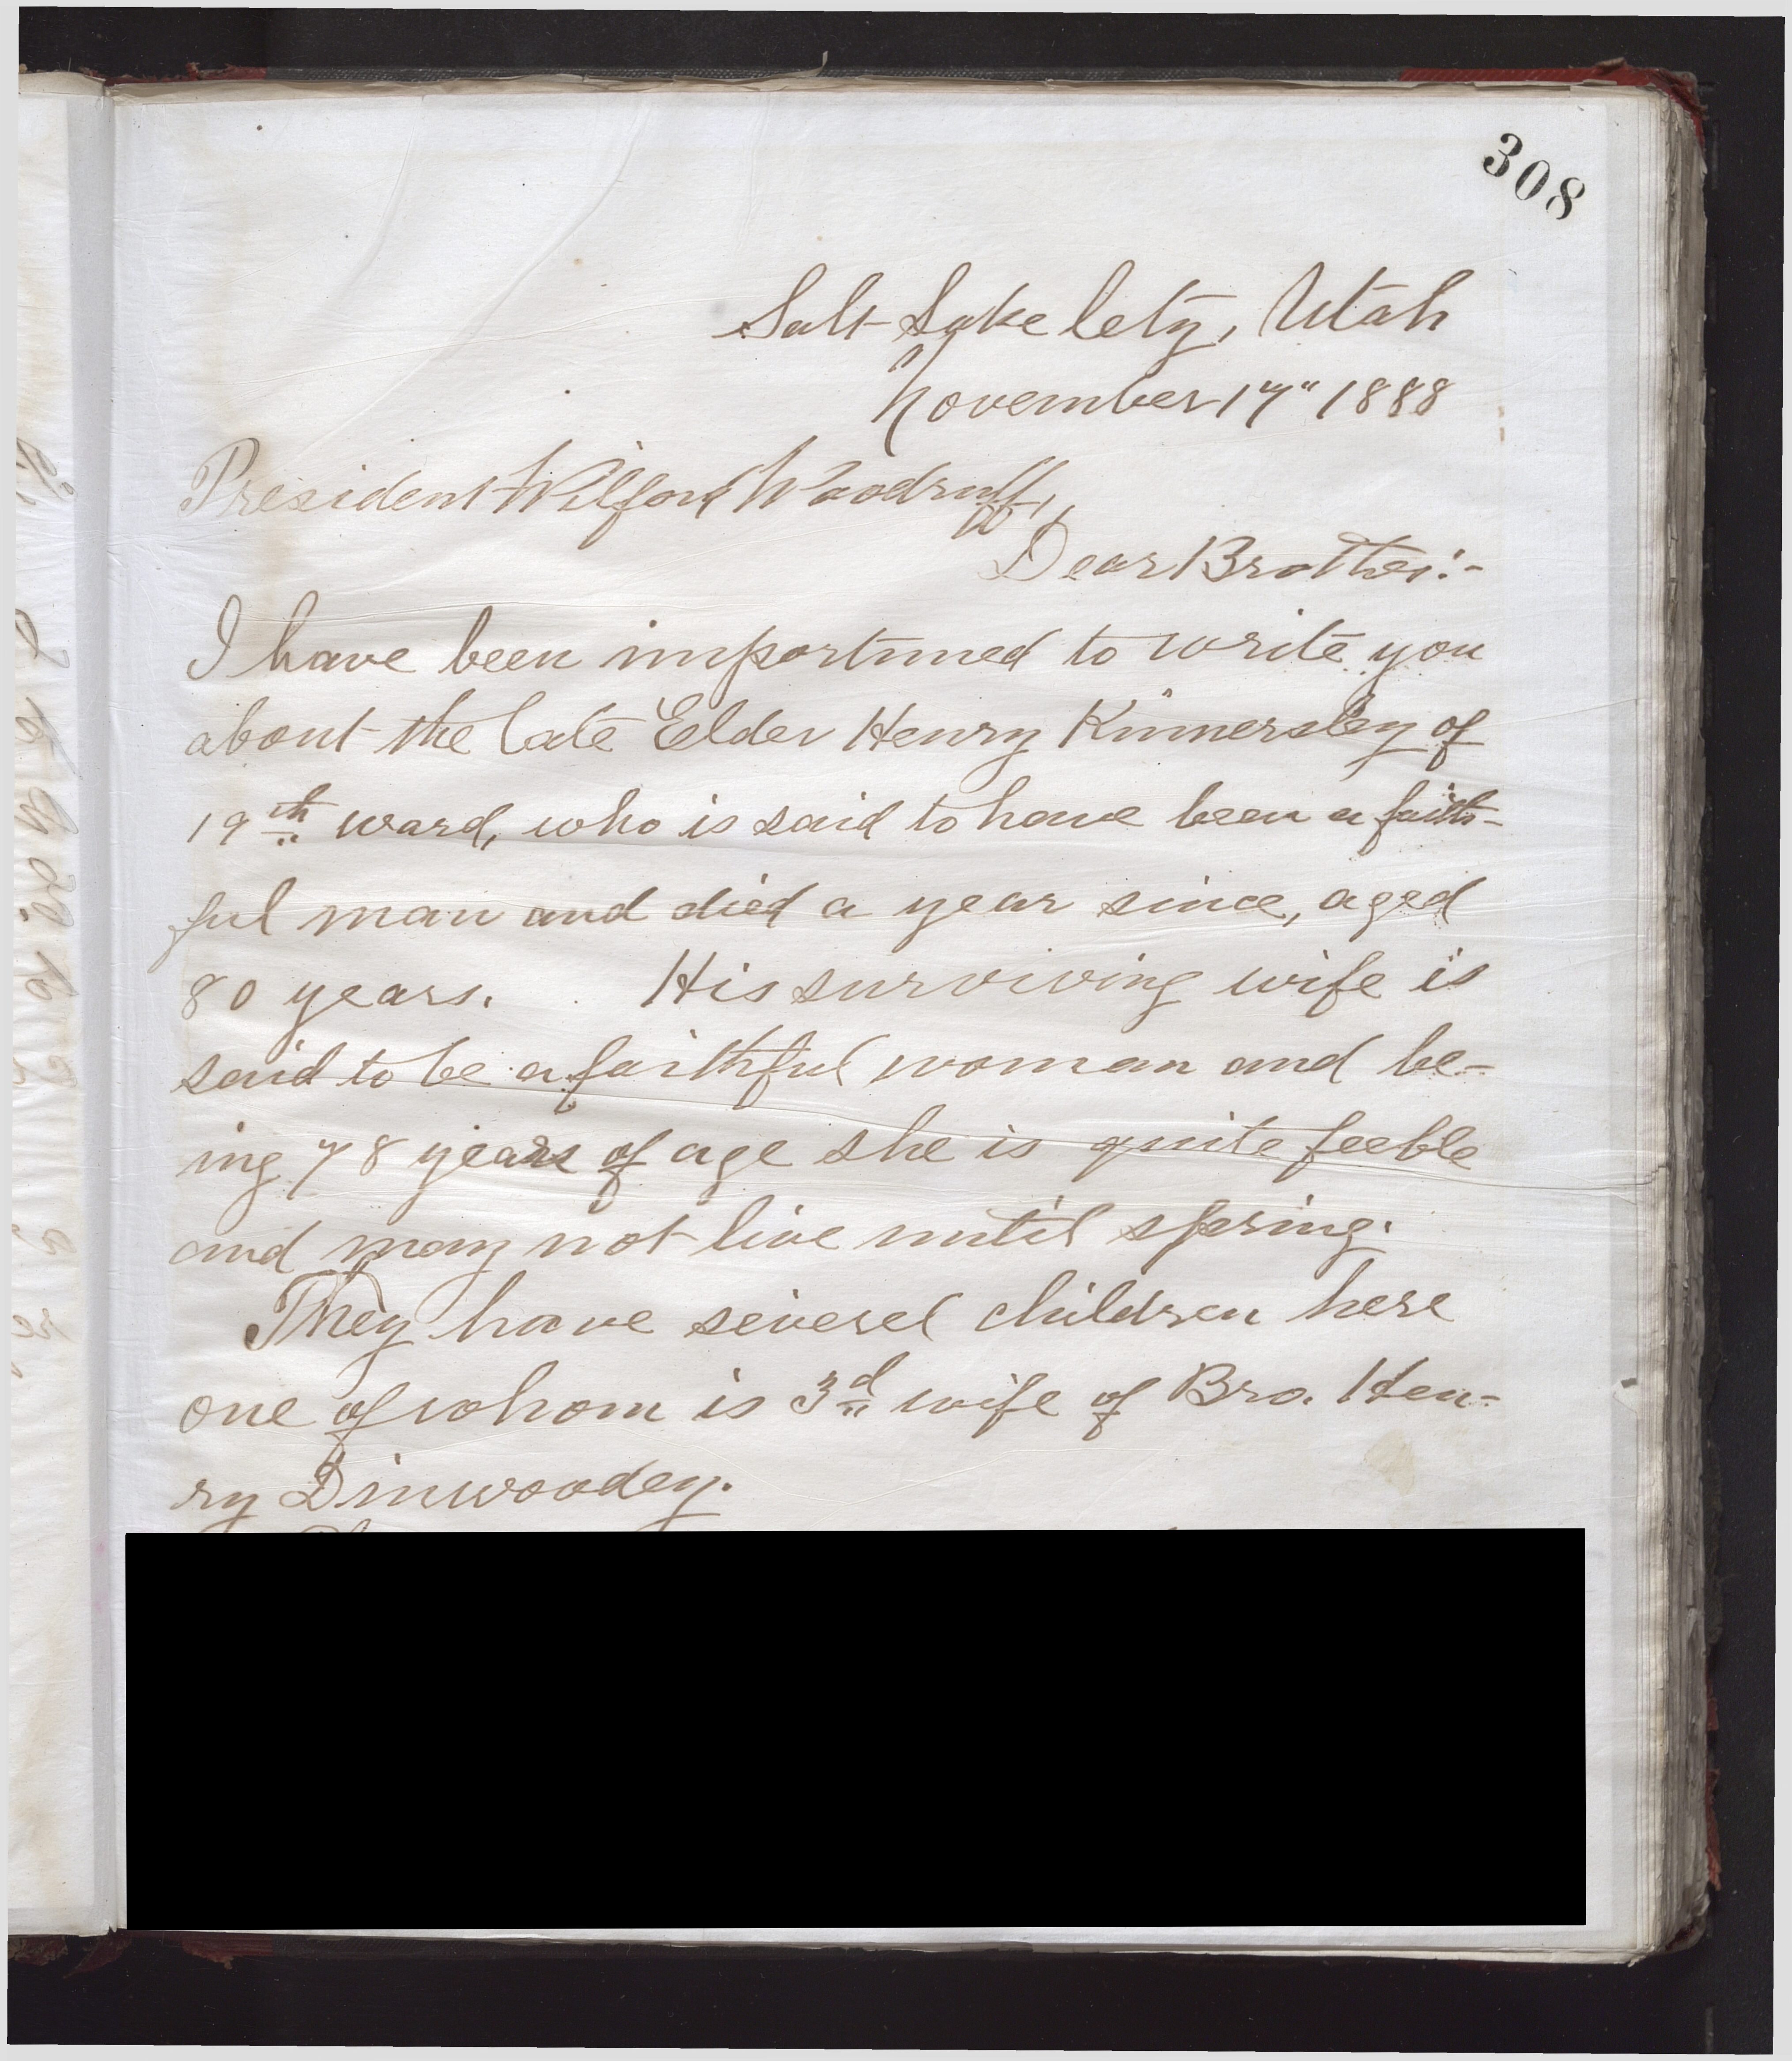 308
Salt Lake City, Utah
November 17" 1888
President Wilford Woodruff,
Dear Brother:-
I have been importuned to write you
about the late Elder Henry Kinnersley of
19th ward, who is said to have been a faith-
ful man and died a year since, aged
80 years. His surviving wife is
said to be a faithful woman and be-
ing 78 years of age she is quite feeble
and may not live until spring.
They have several children here
one of whom is 3d wife of Bro. Hen-
ry Dinwoodey.